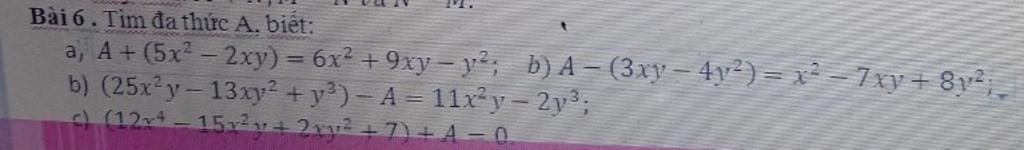 Bài 6 . Tìm đa thức A, biết:
a, A + (5x² − 2xy) = 6x² + 9xy − y²; b) A − (3xy − 4y²) = x² − 7xy + 8y²;
b) (25x²y − 13xy² + y³) − A = 11x²y − 2y³;
c) (12x⁴ − 15x²y + 2xy² + 7) + A = 0.